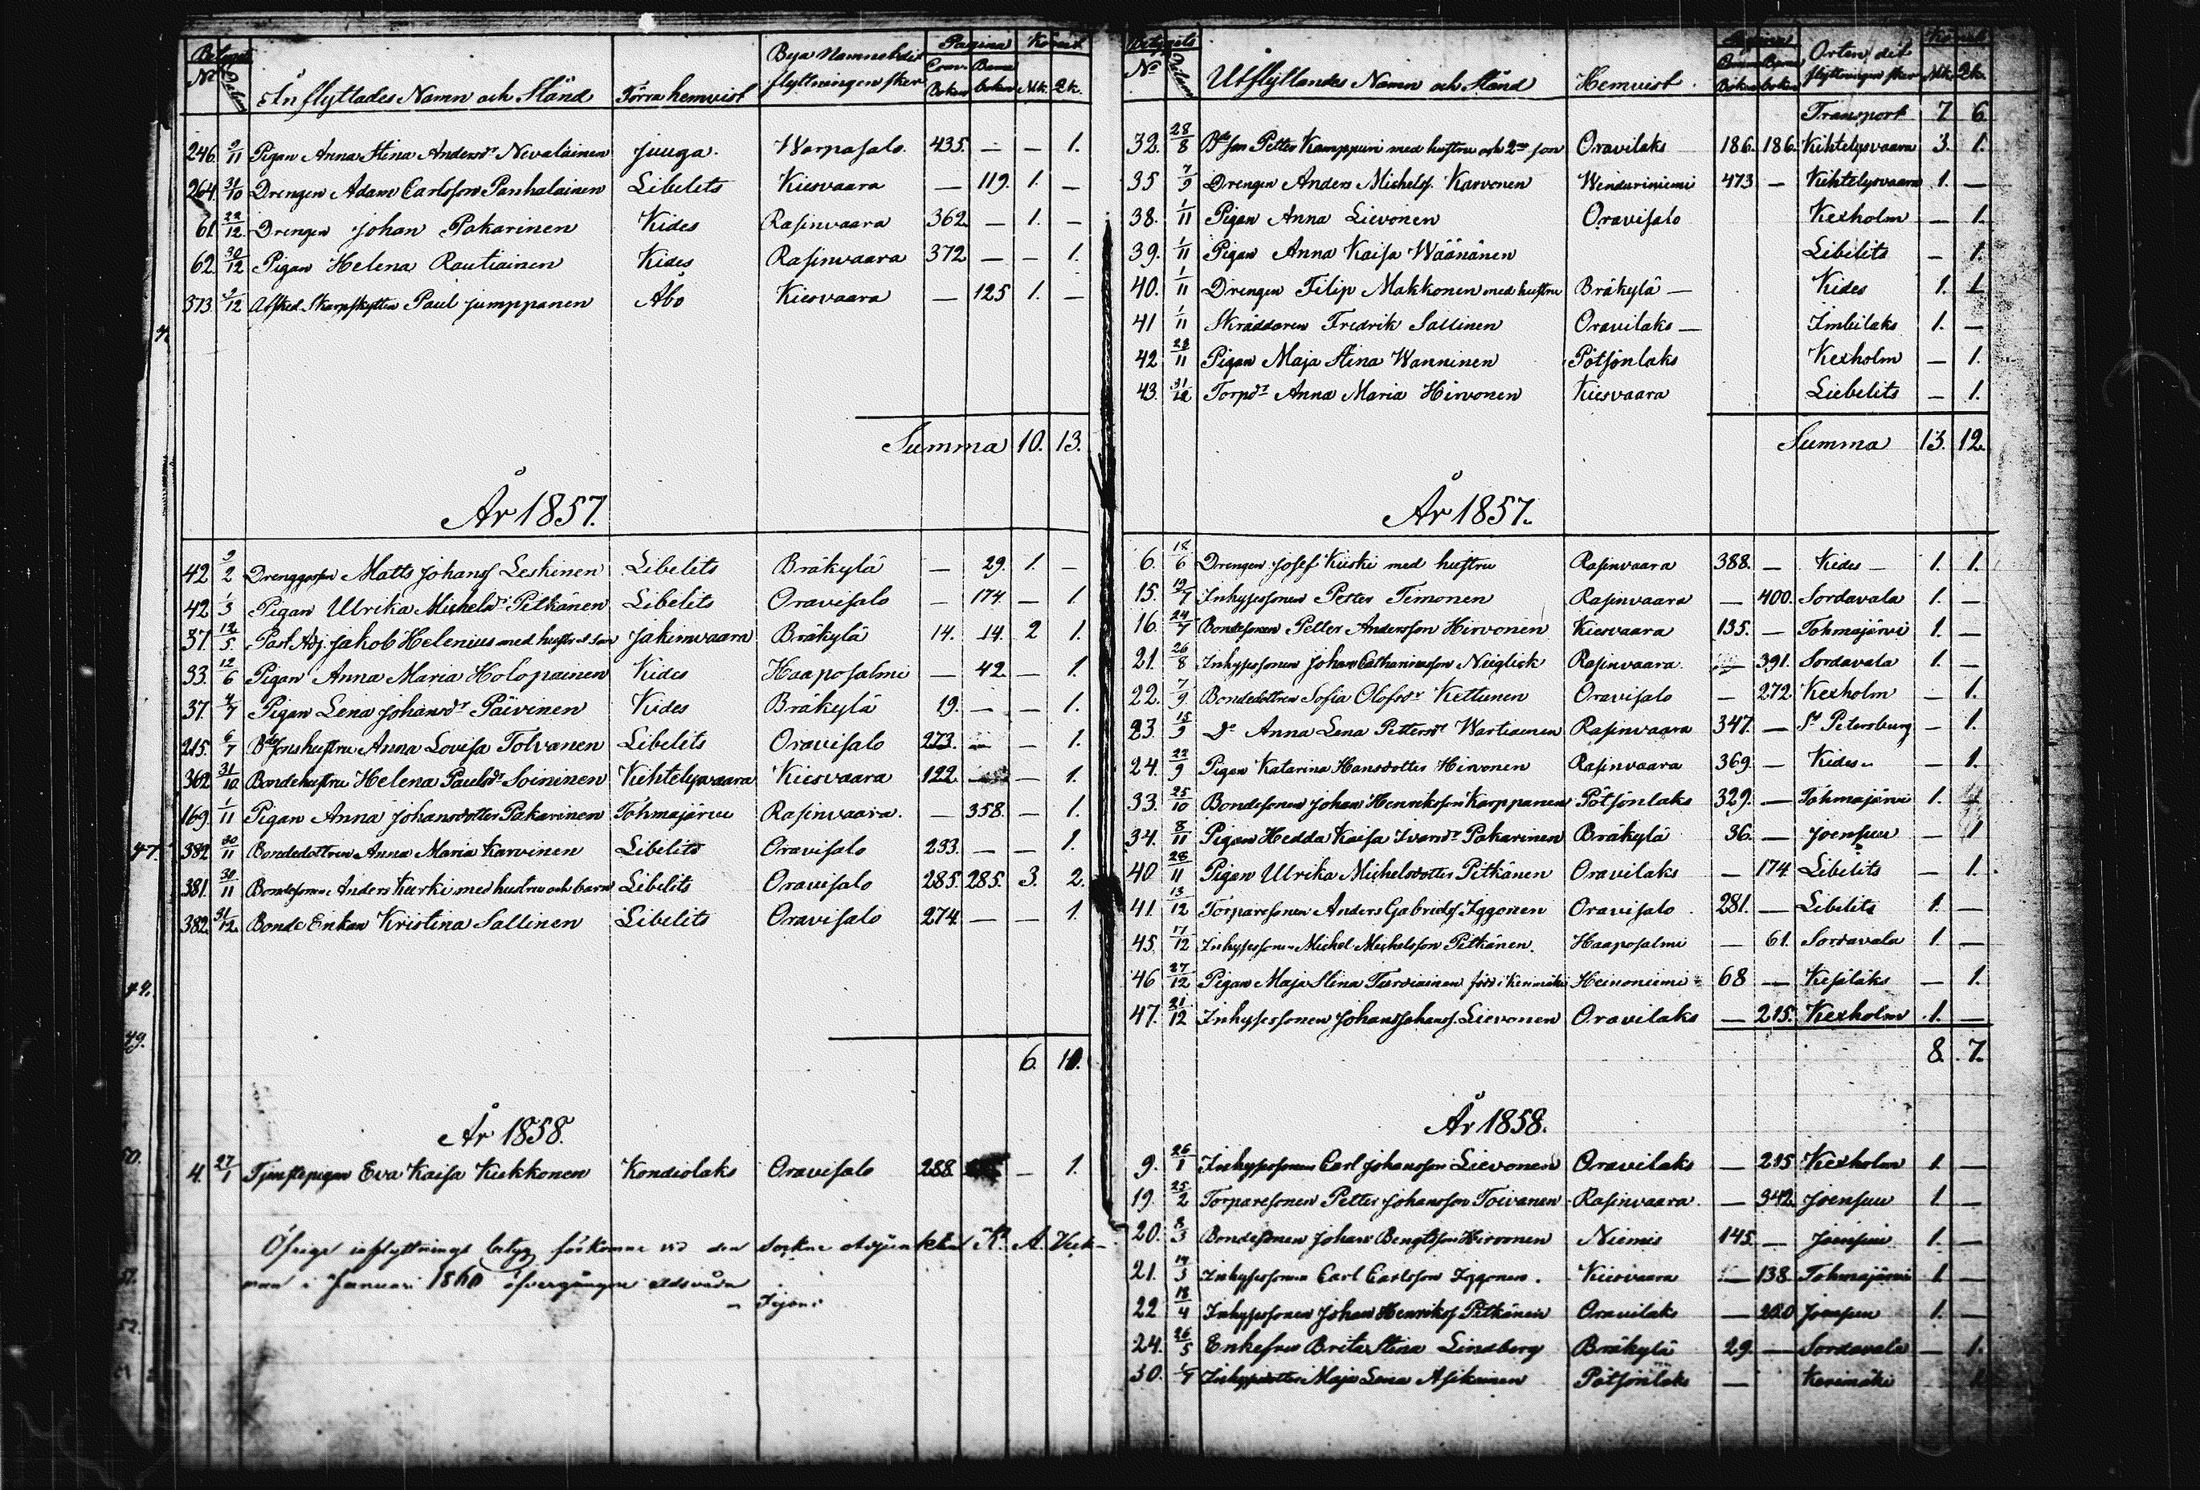 Betygets Pagina Könet
No Datum Inflyttades Namn och Stånd Förra hemvist Bya Namnet dit flyttningen sker Comm. Boken Barna boken Mk. Qk.
246. 9/11 Pigan Anna Stina Andersdr Nevalainen Juuga. Warpasalo. 435. — — 1.
264. 31/10 Drengen Adam Carlsson Panhalainen Libelits Kiesvaara — 119. 1. —
61. 22/12 Drengen Johan Pakarinen Kides Rasinvaara 362. — 1. —
62. 30/12 Pigan Helena Rautiainen Kides Rasinvaara 372 — — 1.
373. 2/12 Afsked. Skarpskytten Paul Jumppanen Åbo Kiesvaara — 125 1. —
Summa 10. 13.
År 1857.
42. 2/2 Matts Johanss Leskinen Libelits Bräkylä — 29. 1. —
42. 1/3 Pigan Ulrika Michelsdr Pitkänen Libelits Oravisalo — 174. — 1.
37. 12/5 Past. Adj. Jakob Helenius med hustru o son Jakimvaara Bräkylä 14. 14. 2 1.
33. 12/6 Pigan Anna Maria Holopainen Kides Haaposalmi — 42. — 1.
37. 4/7 Pigan Lena Johansdr Päivinen Kides Bräkylä 19. — — 1.
215. 6/7 Bdesonshustru Anna Lovisa Tolvanen Libelits Oravisalo 273. — — 1.
302. 31/10 Bondehustru Helena Paulsdr Soininen Kihtelysvaara Kiesvaara 122 — — 1.
169. 1/11 Pigan Anna Johansdotter Pakarinen Tohmajärvi Rasinvaara. — 358. — 1.
382. 30/11 Bondedottren Anna Maria Karvinen Libelits Oravisalo 233. — — 1.
381. 30/11 Bondesonen Anders Kurki med hustru och barn Libelits Oravisalo 285. 285. 3. 2.
382. 31/12 Bonde Enkan Kristina Sallinen Libelits Oravisalo 274. — — 1.
6. 10.
År 1858.
4. 27/1 Tjenstepigan Eva Kaisa Kukkonen Kondiolaks Oravisalo 288. — 1.
Öfriga inflyttnings betyg förkomne vid den sockne Adjunkten K. A.
i Januari 1860 öfvergångne eldsvåda
Betygets Pagina Könet
No Datum Utflyttandes Namn och Stånd Hemvist Comm. Boken Barna boken Orten, dit flyttningen sker Mk. Qk.
Transport 7 6
32. 28/8 Bdeson Petter Kamppuri med hustru och 2ne son Oravilaks 186. 186. Kihtelysvaara 3. 1.
35 7/9 Drengen Anders Michelss. Karvonen Wenduriniemi 473 — Kihtelysvaara 1. —
38. 1/11 Pigan Anna Lievonen Oravisalo Kexholm — 1.
39. 1/11 Pigan Anna Kaisa Wäänänen Libelits — 1.
40. 1/11 Drengen Filip Makkonen med hustru Bräkylä — Kides 1. 1
41 1/11 Skräddaren Fredrik Sallinen Oravilaks — Imbilaks 1. —
42 28/11 Pigan Maja Stina Wanninen Pötsönlaks Kexholm — 1.
43. 31/12 Torpdr Anna Maria Hirvonen Kiesvaara Liebelits — 1.
Summa 13. 12.
År 1857.
6. 18/6 Drengen Josef Kiiski med hustru Rasinvaara 388. — Kides — 1. 1.
15. 19/7 Inhysessonen Petter Timonen Rasinvaara — 400. Sordavala 1. —
16. 24/7 Bondesonen Petter Andersson Hirvonen Kiesvaara 135. — Tohmajärvi 1. —
21. 26/8 Inhysessonen Johan Neiglick Rasinvaara. 391. Sordavala 1. —
22. 7/9 Bondedottren Sofia Olofsdr Kettunen Oravisalo — 272. Kexholm — 1.
23. 15/9 Do Anna Lena Pettersdr Wartiainen Rasinvaara 347. — St Petersburg — 1.
24. 22/9 Pigan Katarina Hansdotter Hirvonen Rasinvaara 369 — Kides — — 1.
33. 25/10 Bondesonen Johan Henriksson Karppanen Pötsönlaks 329. — Tohmajärvi 1.
34. 8/11 Pigan Hedda Kaisa Ivarsdr Pakarinen Bräkylä 36. — Joensuu — 1
40 28/11 Pigan Ulrika Michelsdotter Pitkänen Oravilaks — 174 Libelits — 1.
41. 13/12 Torparesonen Anders Gabrielss Iggonen Oravisalo. 281. — Libelits 1. —
45. 17/12 Inhysessonen Michel Michelsson Pitkänen. Haaposalmi — 61. Sordavala 1. —
46 27/12 Pigan Maja Stina Turviainen född i Kerimäki Heinoniemi 68 — Kesälaks — 1.
47. 21/12 Inhysessonen Johan Johanss. Lievonen Oravilaks — 215. Kexholm 1. —
8. 7.
År 1858.
9. 26/1 Inhysessonen Carl Johansson Lievonen Oravilaks — 215 Kexholm 1. —
19. 25/2 Torparesonen Petter Johansson Toivanen Rasinvaara. — 342. Joensuu 1. —
20. 8/3 Bondesonen Johan Bengtsson Hirvonen Niemis 145. — Joensuu 1. —
21. 14/3 Inhysessonen Carl Carlsson Iggonen. Kiesvaara — 138. Tohmajärvi 1. —
22 18/4 Inhysessonen Johan Henrikss Pitkänen Oravilaks — 200 Joensuu 1. —
24. 26/5 Enkefru Brita Stina Lindberg Bräkylä 29. — Sordavala — 1.
30. Inhysesdotter Maja Lena Asikainen Pötsönlaks — Kerimäki